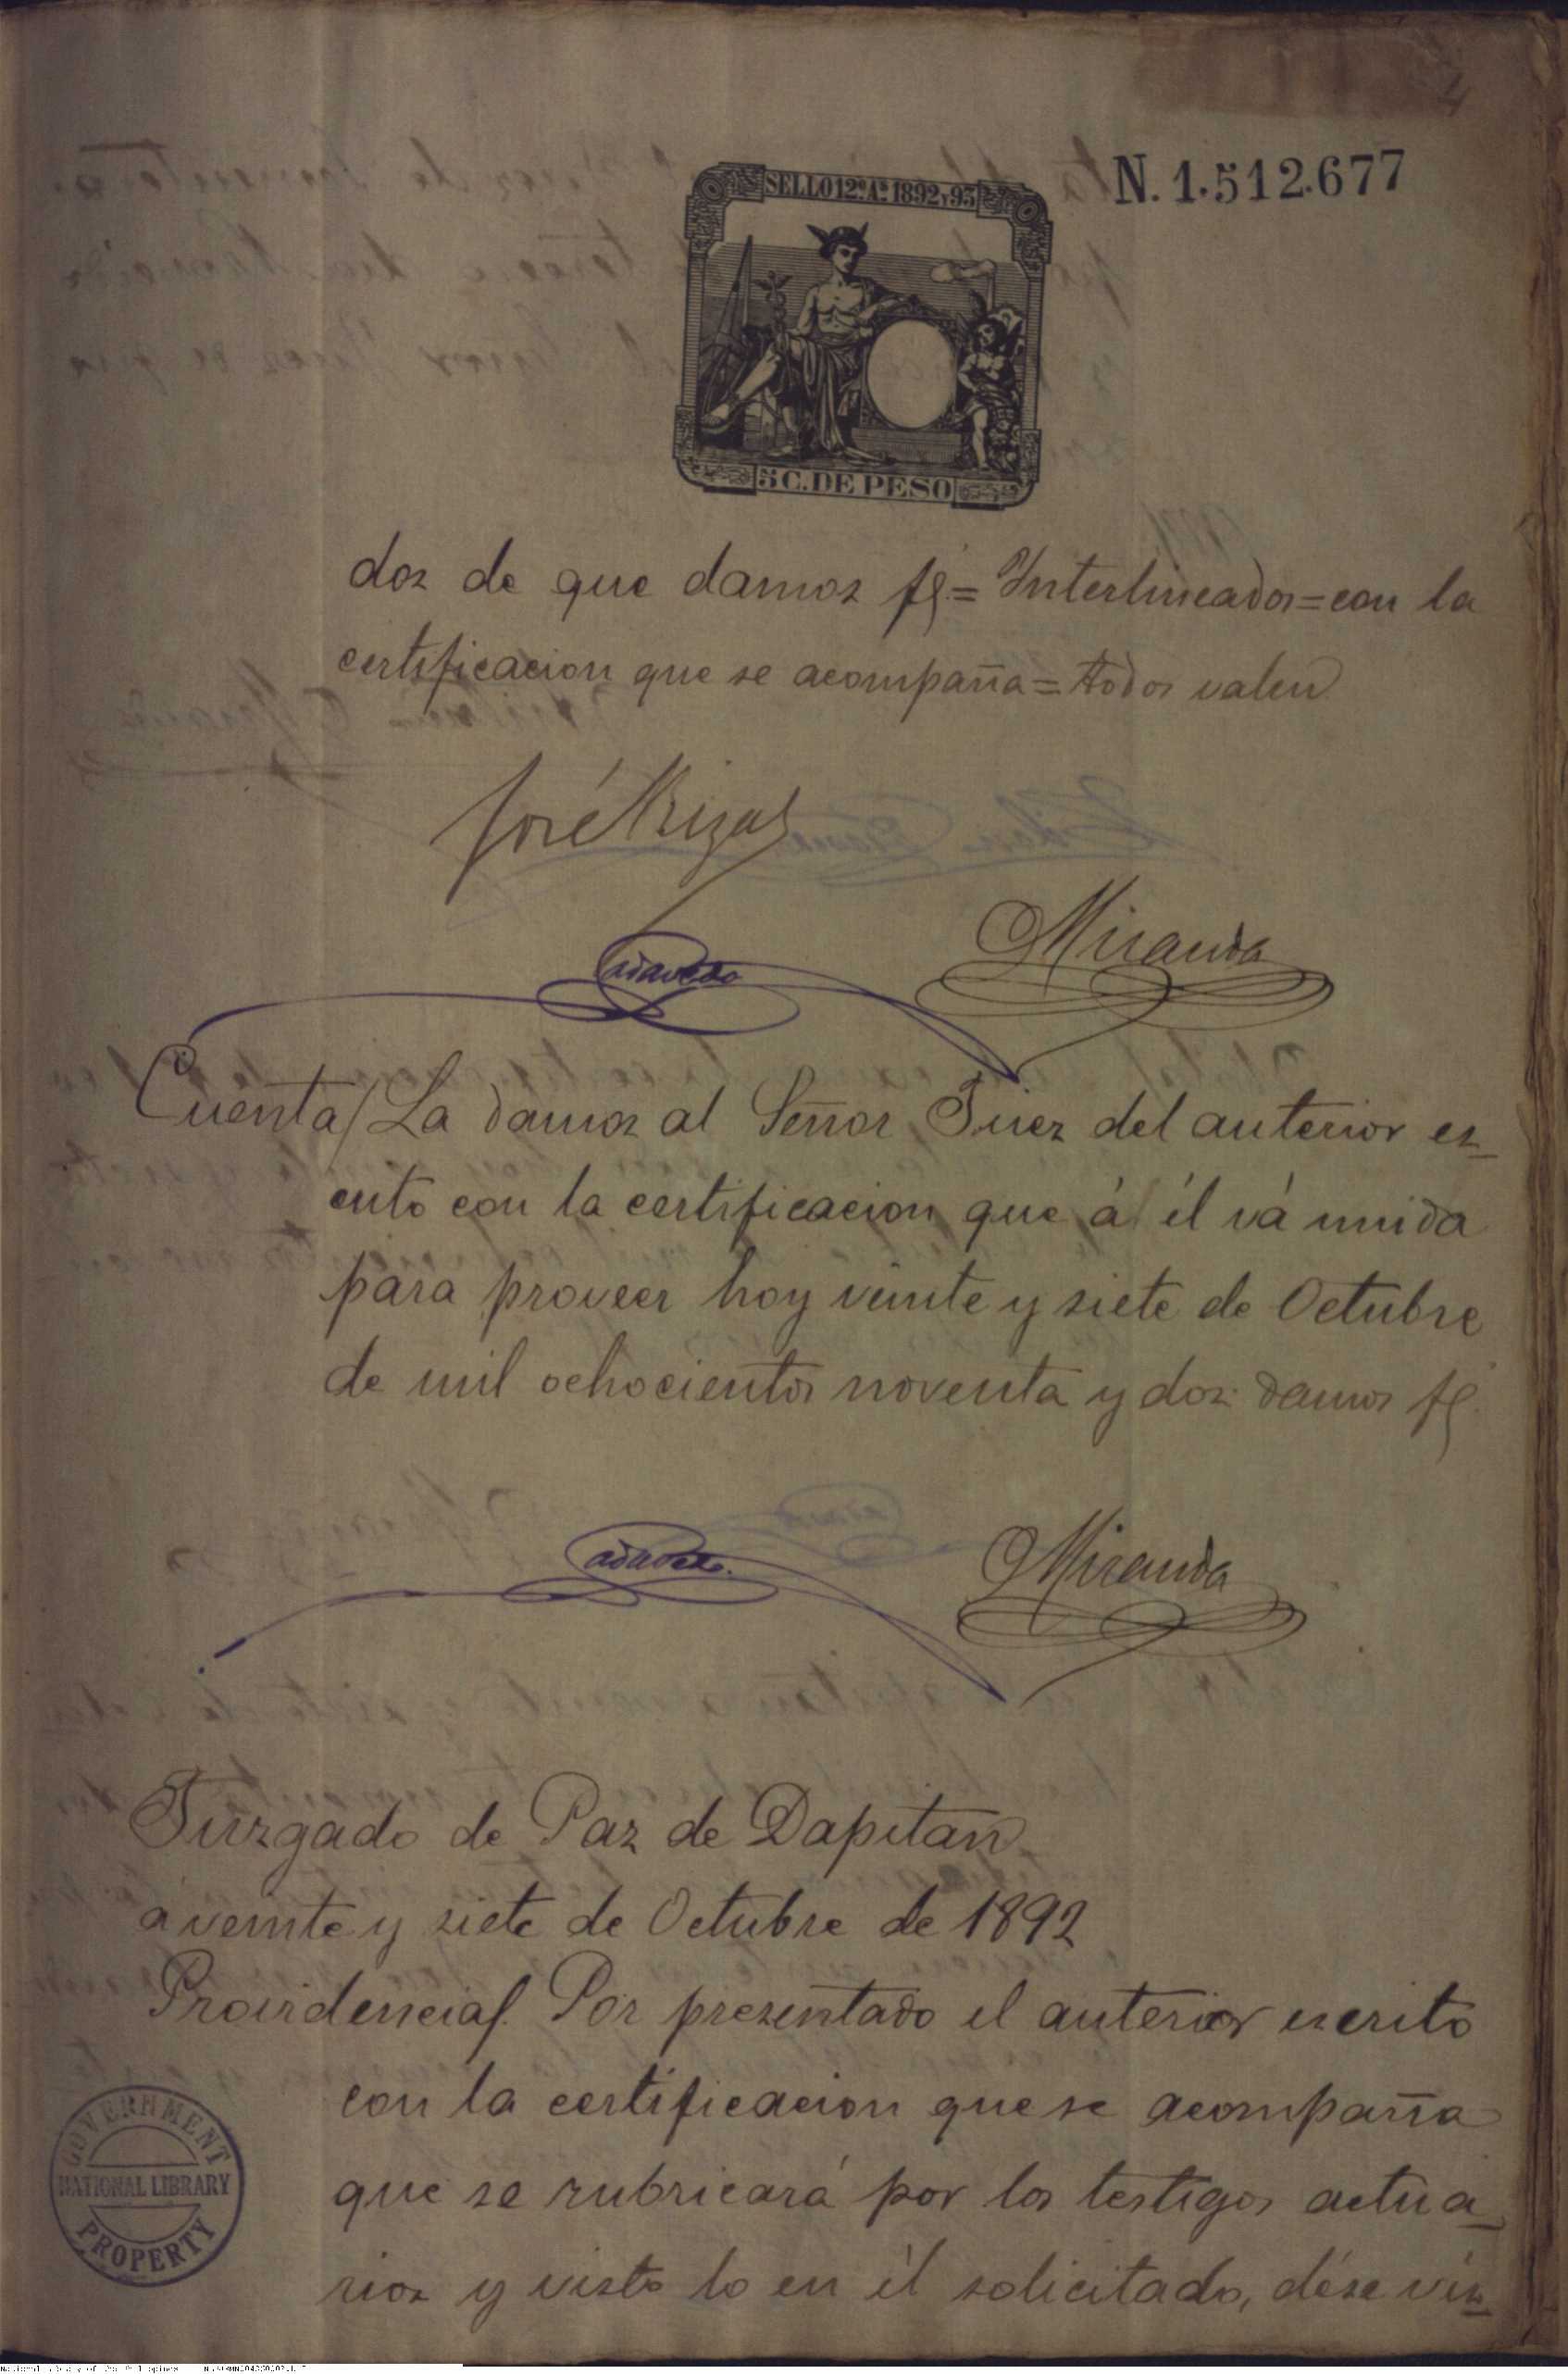 4
N. 1.512.677
SELLO 12º Aº 1892 y 93
5 C. DE PESO
dos de que damos fé.= Interlineados=con la
certificacion que se acompaña=todos valen
José Rizal
Cadavedo
Miranda
Cuenta/ La damos al Señor Juez del anterior es-
crito con la certificacion que á él vá unida
para proveer hoy veinte y siete de Octubre
de mil ochocientos noventa y dos: damos fé.
Cadavedo.
Miranda
Juzgado de Paz de Dapitan
á veinte y siete de Octubre de 1892
Providencia/. Por presentado el anterior escrito
con la certificacion que se acompaña
que se rubricará por los testigos actua-
rios y visto lo en él solicitado, dése vis-
GOVERNMENT
NATIONAL LIBRARY
PROPERTY
National Library of the Philippines